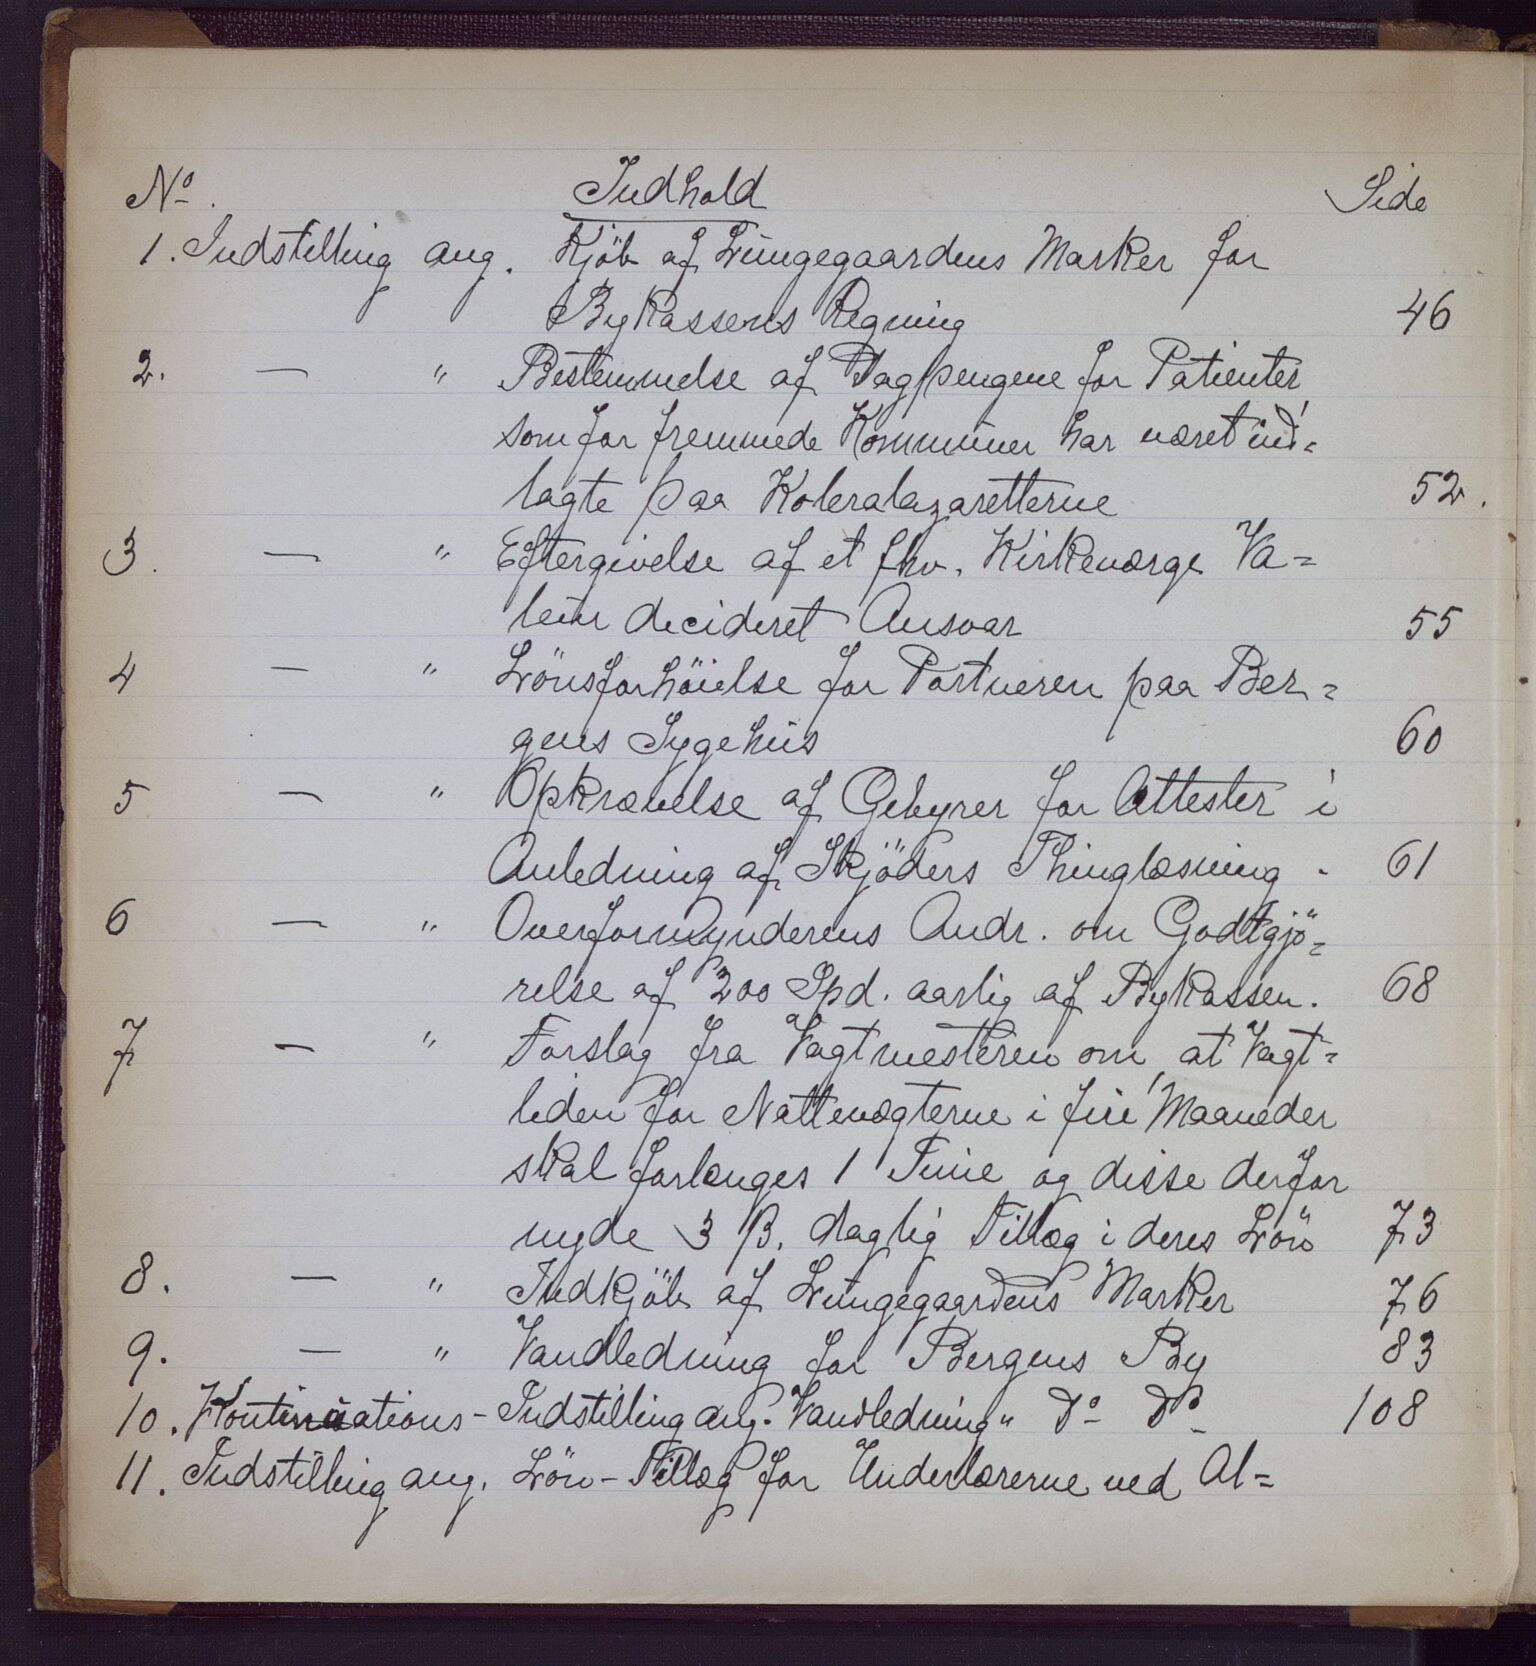 No. Indhold Side
1. Indstilling ang. Kjöb af Lungegaardens Marker for
Bykassens Regning 46
2. — " Bestemmelse af Dagpengene for Patienter,
som for fremmede Kommuner har været ind=
lagte paa Koleralazaretterne 52.
3. — " Eftergivelse af et fhv. Kirkeværge Va=
leur decideret Ansvar 55
4 — " Lönsforhöielse for Portneren paa Ber=
gens Sygehus 60
5 — " Opkrævelse af Gebyrer for Attester i
Anledning af Skjöders Thinglæsning. 61
6 — " Overformynderens Andr. om Godtgjö=
relse af 200 Spd. aarlig af Bykassen. 68
7 — " Forslag fra Vagtmesteren om, at Vagt=
tiden for Nattevægterne i fire Maaneder
skal forlænges 1 Time og disse derfor
nyde 3 β. daglig Tillæg i deres Lön 73
8. — " Indkjöb af Lungegaardens Marker 76
9. — " Vandledning for Bergens By 83
10. Kontinuations- Indstilling ang. Vandledning " Do Do 108
11. Indstilling ang. Lön-Tillæg for Underlærerne ved Al=